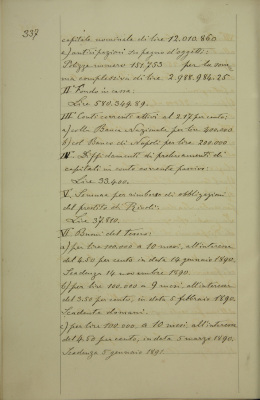 337
capitale nominale di lire 12.010.860
c) anticipazioni su pegno d'oggetti:
Polizze numero 151.753 per la som
ma complessiva di lire 2.988.984.25
II Fondo in cassa:
Lire 580.349.89.
III. Conti correnti attivi al 2.17 per cento:
a) colla Banca Nazionale per lire 400.000
b) col Banco di Napoli per lire 200.000
IV. di prelevamenti di
capitali in conto corrente passivo:
Lire 33.400.
V. Somma per rimborso di obbligazioni
del prestito di Rivoli:
Lire 37.810.
VI Buoni del tesoro:
a) per lire 100.000 a 10 mesi, all'interesse
del 4.50 per cento in data 14 gennaio 1890.
Scadenza 14 novembre 1890.
b) per lire 100.000 a 9 mesi, all'interesse
del 3.50 per cento, in data 5 febbraio 1890.
Scadenza domani.
c) per lire 100.000, a 10 mesi, all'interesse
del 4.50 per cento, in data 5 marzo 1890.
Scadenza 5 gennaio 1891.